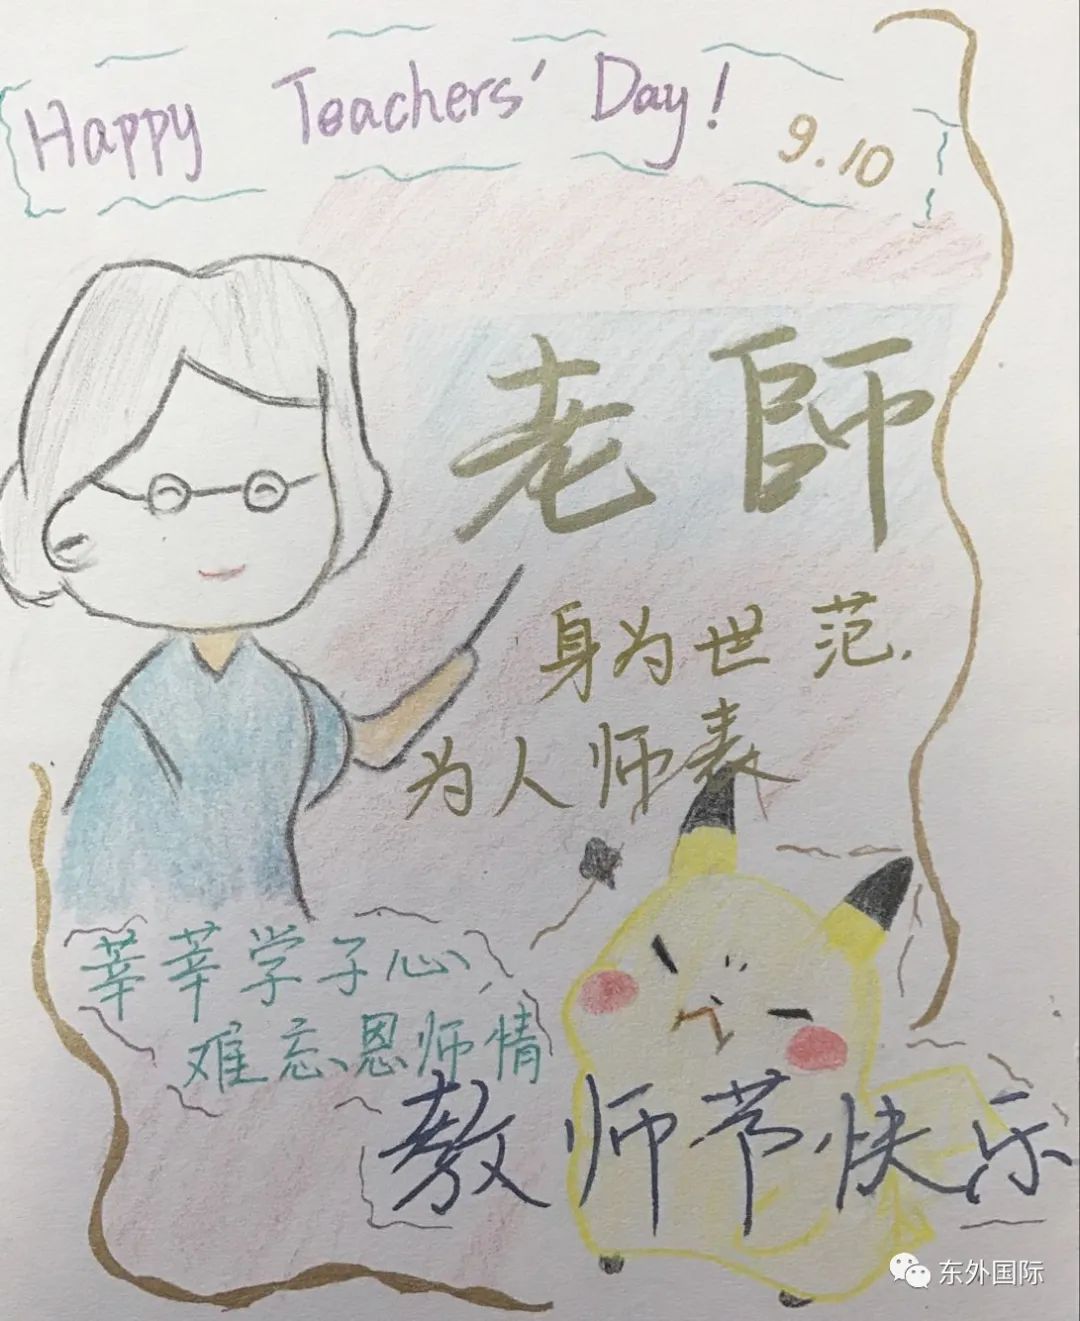 Happy Teachers' Day!
9.10
老師
身为世范.
为人师表
莘莘学子心
难忘恩师情
教师节快乐
东外国际